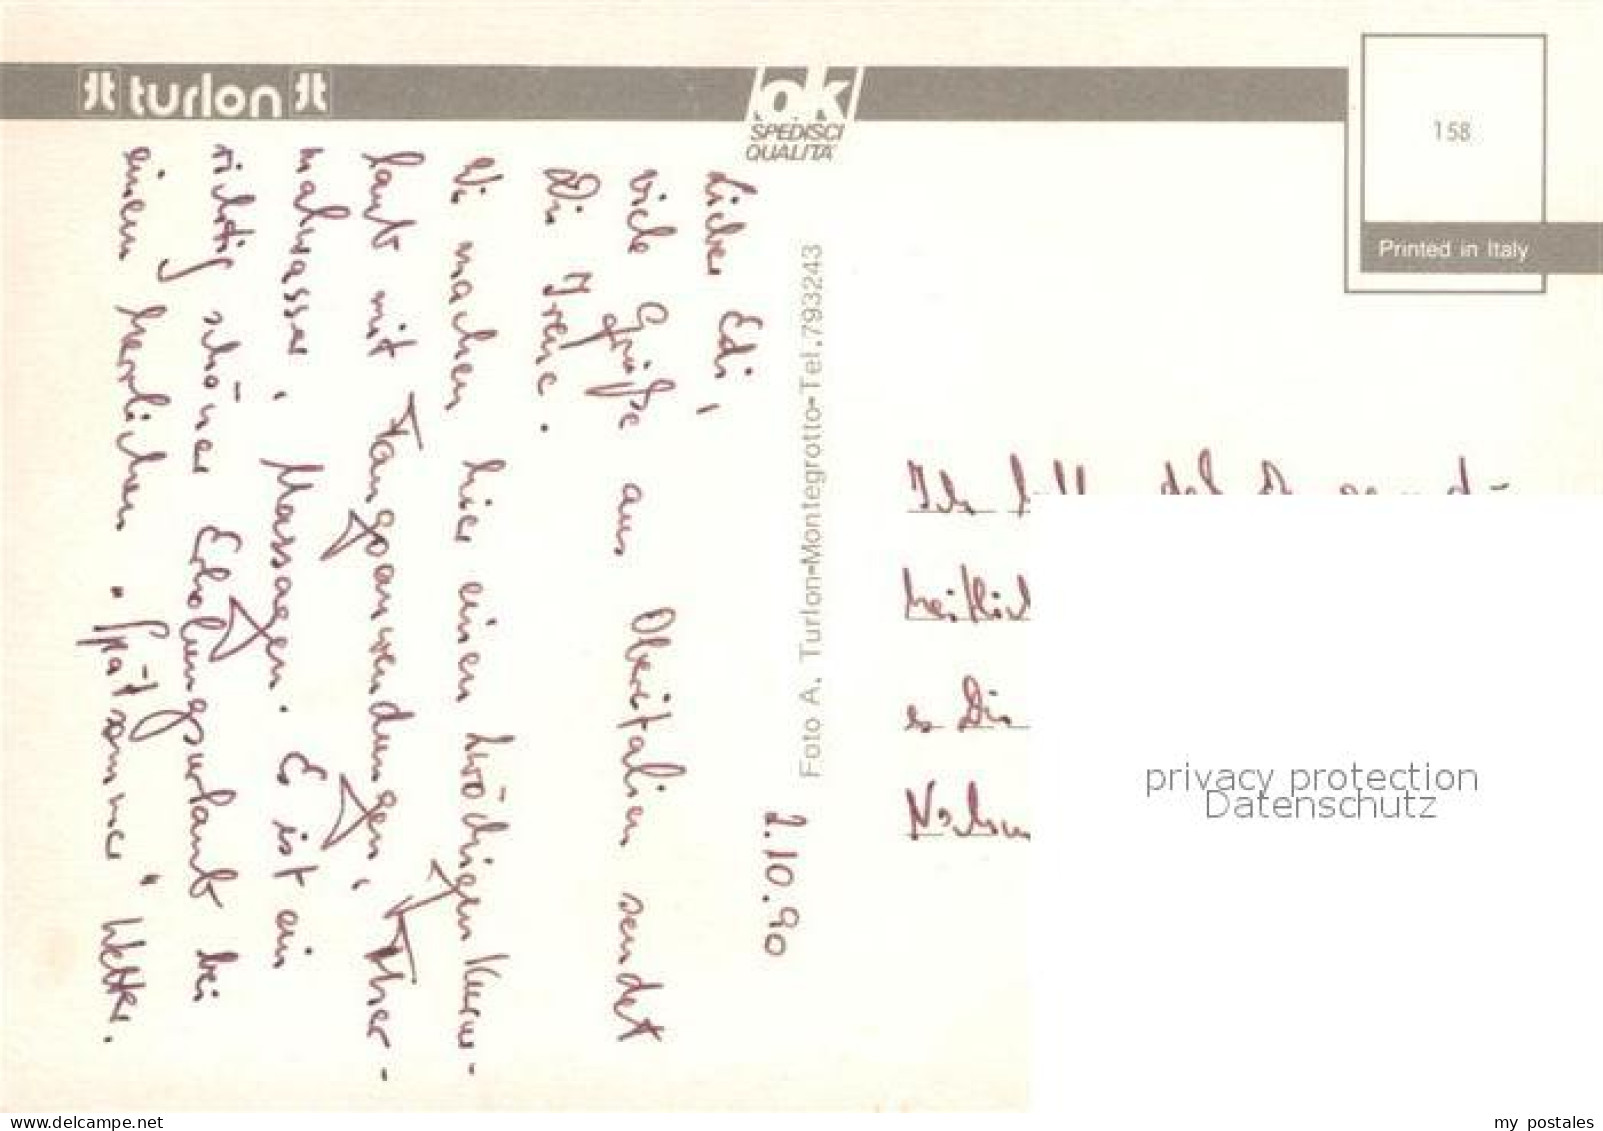 turlon
ok
SPEDISCI
QUALITA'
158
Printed in Italy
Foto A. Turlon-Montegrotto-Tel.793243
2.10.90
Lieber Edi,
viele Grüße aus Oberitalien sendet
Dir Irene.
Wir machen hier einen 2wöchigen Kurur-
laub mit Fangoanwendungen, Ther-
malwasser, Massagen. Es ist ein
richtig schöner Erholungsurlaub bei
einem herrlichen "Spätsommer" Wetter.
Ich
es Dir
privacy protection
Datenschutz
my postales
delcampe.net